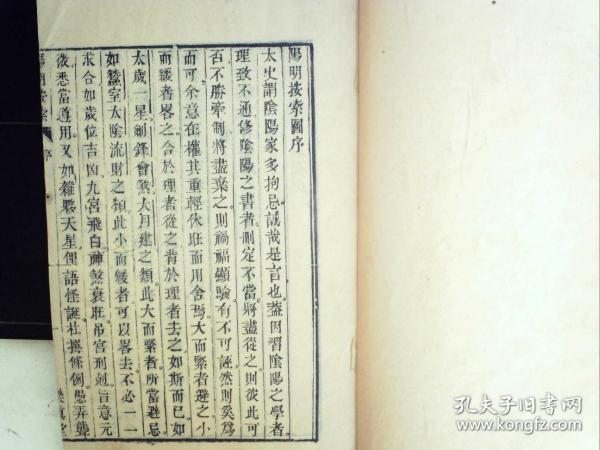 陽明按索圖序
太史謂陰陽家多拘忌誠哉是言也蓋因習陰陽之學者
理致不通修陰陽之書者刪定不當將盡從之則彼此可
否不勝牽制將盡棄之則禍福顯驗有不可誣然則奚為
而可余意在權其重輕休旺而用舍焉大而緊者避之小
而緩者畧之合於理者從之背於理者去之如斯而已如
太歲一星劍鋒會煞大月建之類此大而緊者所當避忌
如蠶室太陰流財之類此小而緩者可以畧去不必一一
求合如歲位吉凶九宮飛白神煞衰旺吊宮刑剋旨意元
微悉當遵用又如雜夥天星俚語怪誕杜撰條例愚弄聾
陽明按索 序
孔夫子旧书网
www.kongfz.com